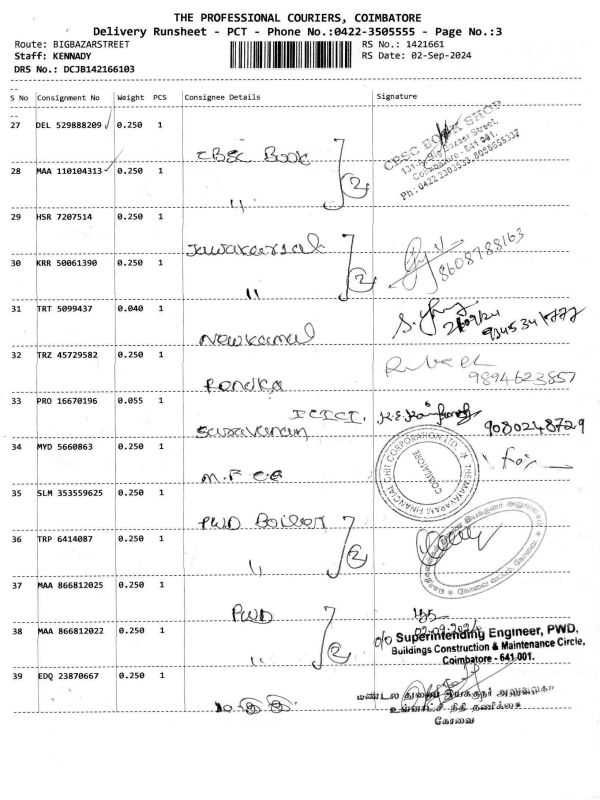 THE PROFESSIONAL COURIERS, COIMBATORE
Delivery Runsheet - PCT - Phone No.:0422-3505555 - Page No.:3
Route: BIGBAZARSTREET RS No.: 1421661
Staff: KENNADY RS Date: 02-Sep-2024
DRS No.: DCJB142166103
S No Consignment No Weight PCS Consignee Details Signature
27 DEL 529888209 0.250 1 CBSC Book
CBSC BOOK SHOP
Big Bazaar Street,
Coimbatore - 641 001.
28 MAA 110104313 0.250 1 "
2
29 HSR 7207514 0.250 1
30 KRR 50061390 0.250 1 "
2
8608788163
31 TRT 5099437 0.040 1 Newkamal
32 TRZ 45729582 0.250 1
9894623857
33 PRO 16670196 0.055 1 ICICI.
9080248729
34 MYD 5660863 0.250 1
for
COIMBATORE
35 SLM 353559625 0.250 1 PWD Boiler
36 TRP 6414087 0.250 1 "
2
37 MAA 866812025 0.250 1 PWD
38 MAA 866812022 0.250 1 "
2
02.09.2024
o/o Superintending Engineer, PWD,
Buildings Construction & Maintenance Circle,
Coimbatore - 641 001.
39 EDQ 23870667 0.250 1
உள்ளாட்சி நிதி தணிக்கை
கோவை